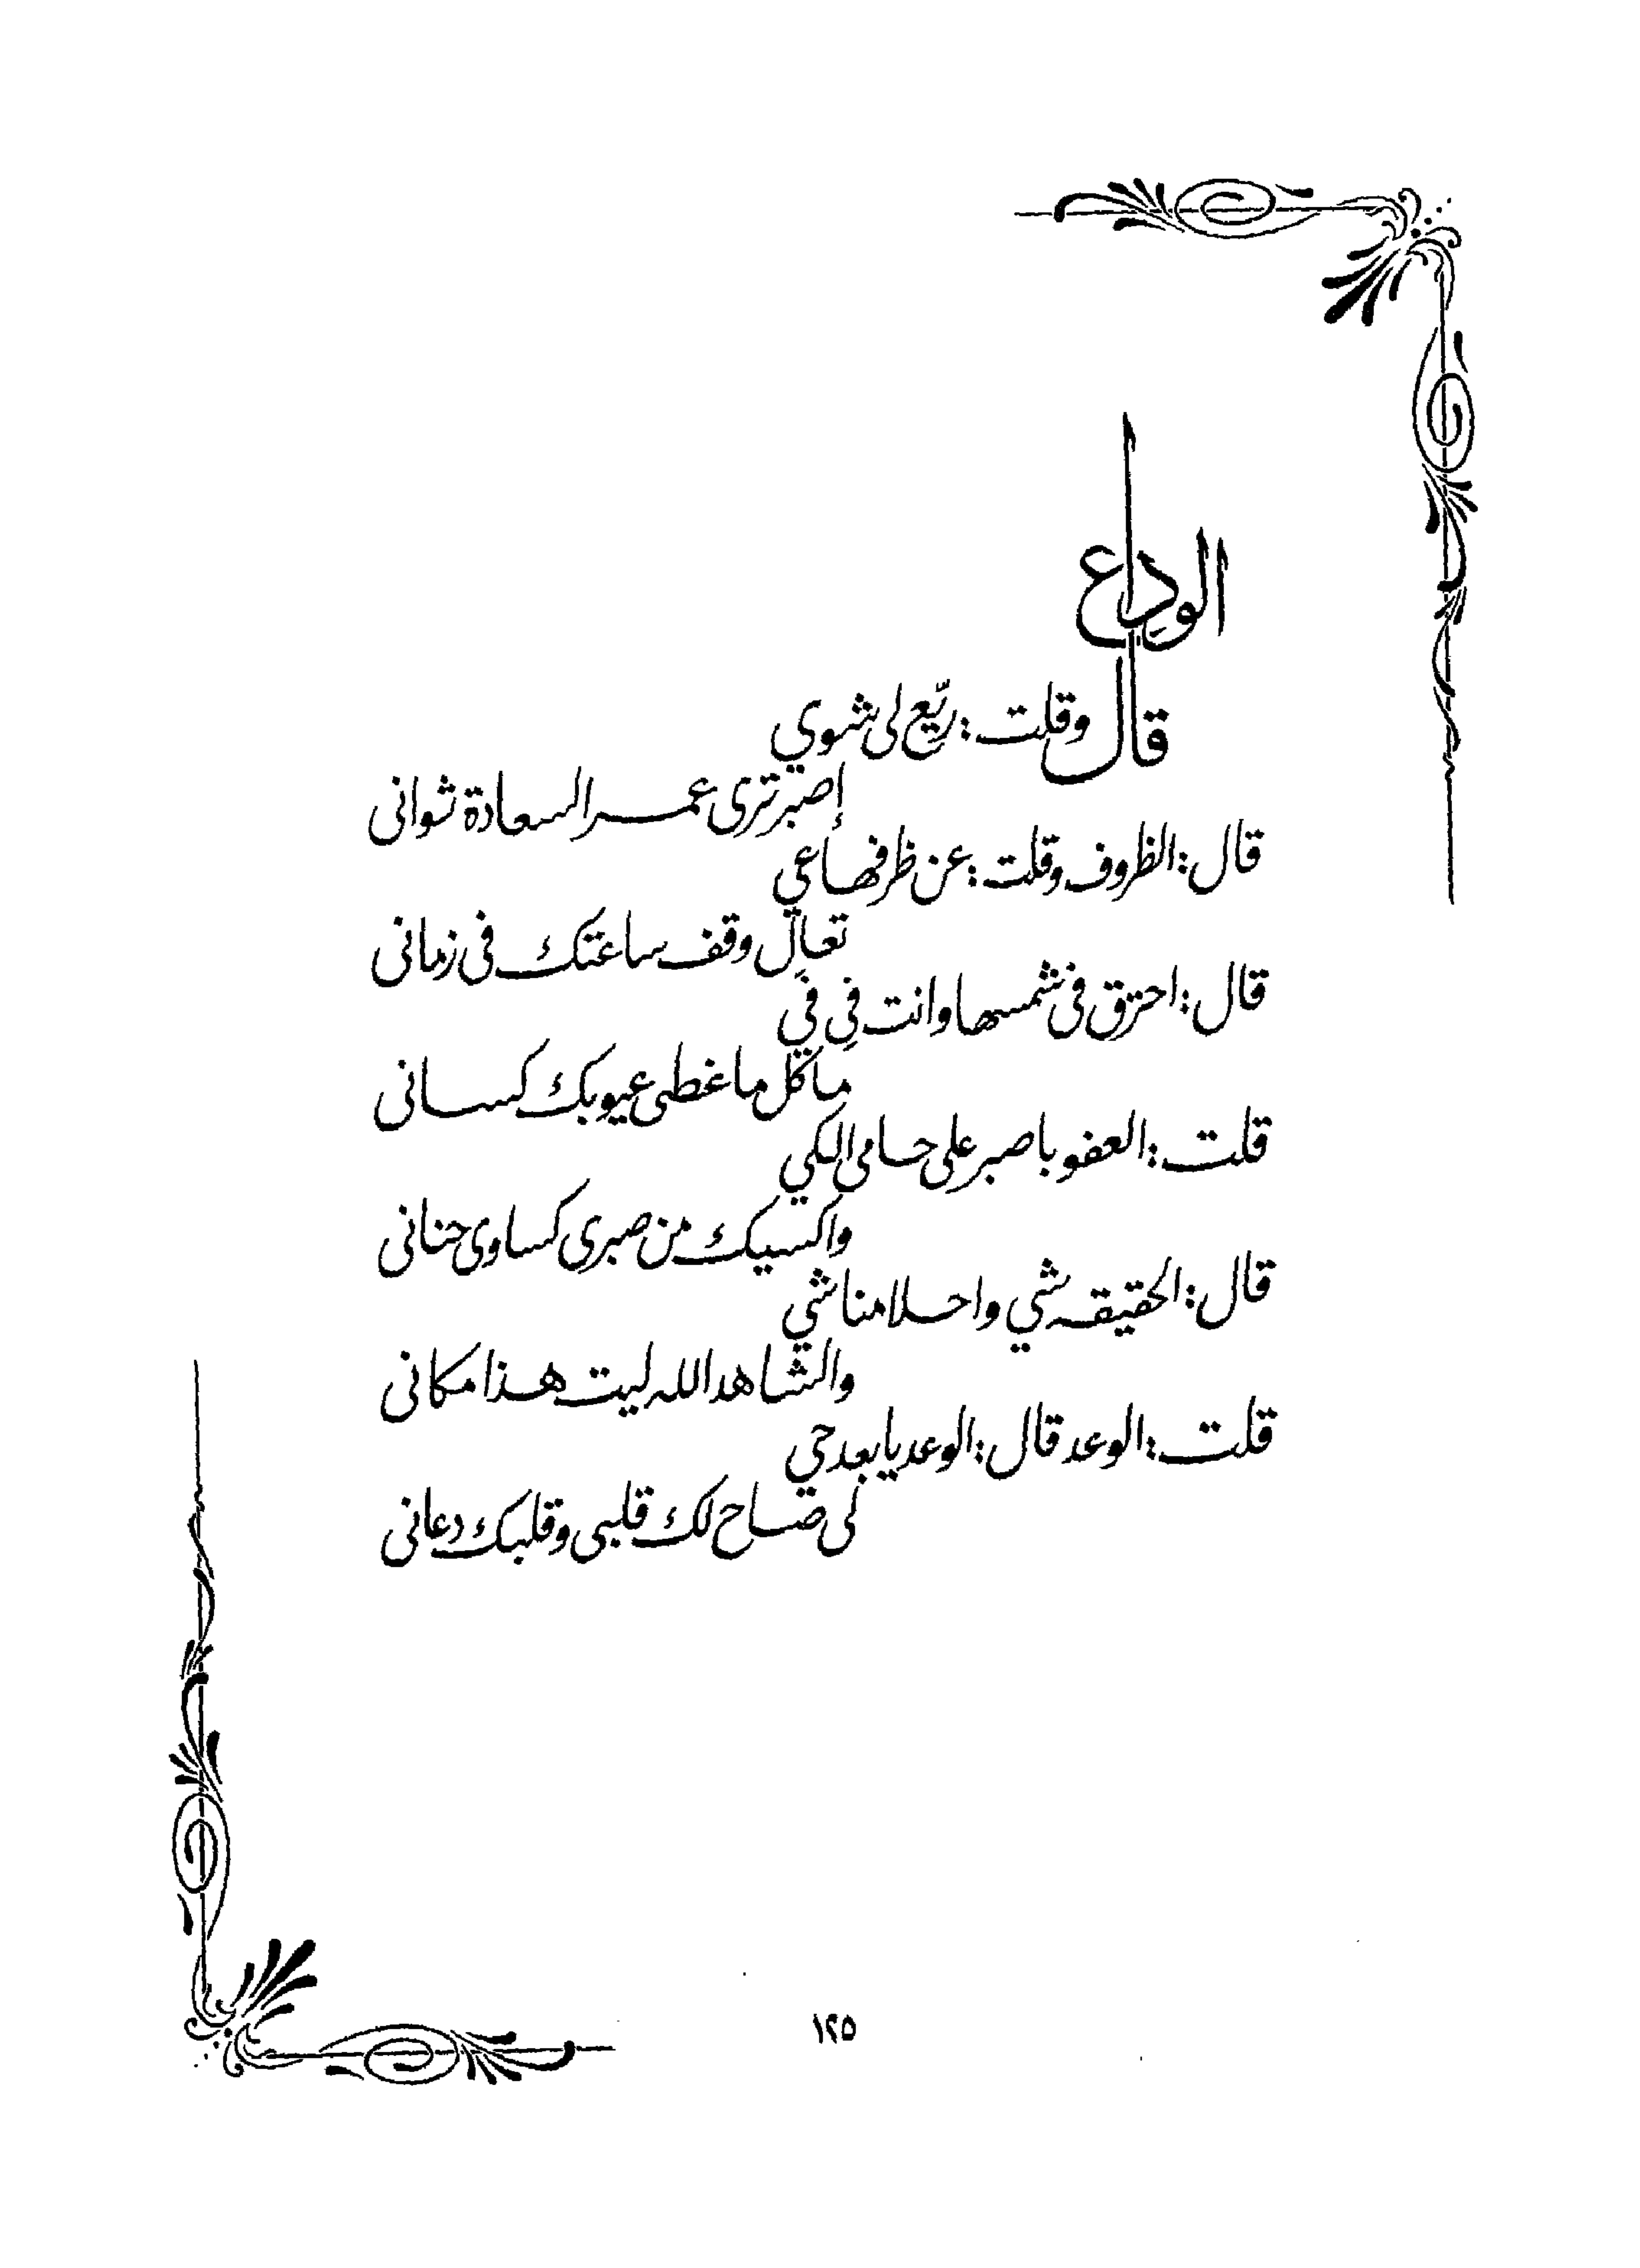 الوداع
قال وقلت : ريّع لى شوي
إصبر ترى عمر السعادة ثوانى
قال : الظروف وقلت : عن ظرفها عي
تعال وقف ساعتك فى زمانى
قال : احترق فى شمسها وانت فِي في
ما كل ما غطى عيوبك كسانى
قلت : العفو باصبر على حامى الكي
واكسيك من صبرى كساوى حنانى
قال : الحقيقه شي واحلامنا شي
والشاهد الله ليت هذا مكانى
قلت : الوعد قال : الوعد يابعد حي
لى صاح لك قلبى وقلبك دعانى
١٢٥